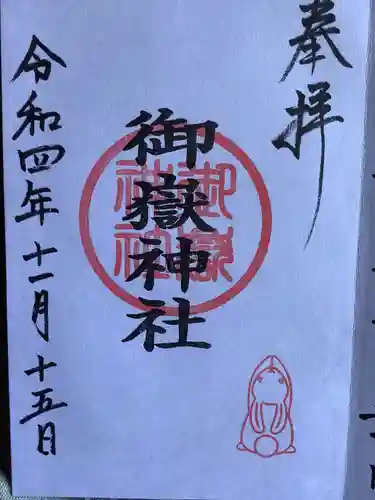 奉拝
御嶽神社
御嶽
神社
令和四年十一月十五日